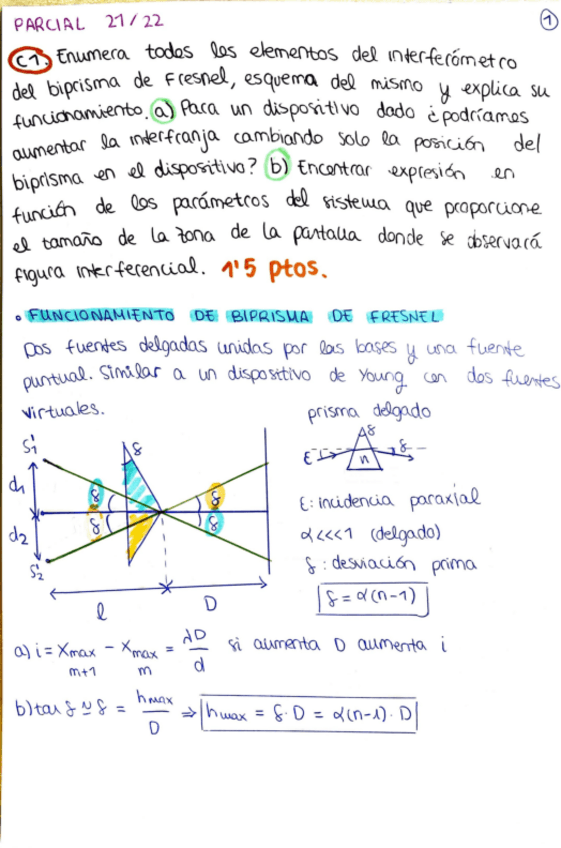 PARCIAL 21/22
1
C1. Enumera todos los elementos del interferómetro
del biprisma de Fresnel, esquema del mismo y explica su
funcionamiento. a) Para un dispositivo dado ¿podríamos
aumentar la interfranja cambiando solo la posición del
biprisma en el dispositivo? b) Encontrar expresión en
función de los parámetros del sistema que proporcione
el tamaño de la zona de la pantalla donde se observará
figura interferencial. 1'5 ptos.
• FUNCIONAMIENTO DE BIPRISMA DE FRESNEL
Dos fuentes delgadas unidas por las bases y una fuente
puntual. Similar a un dispositivo de Young con dos fuentes
virtuales.
prisma delgado
S1'
δ
d1
d2
δ
δ
δ
δ
S2'
l
D
δ
ε
n
δ
ε: incidencia paraxial
α<<<1 (delgado)
δ: desviación prima
δ = α(n-1)
a) i = Xmax m+1 - Xmax m = λD/d si aumenta D aumenta i
b) tan δ ≃ δ = hmax/D ⇒ hmax = δ·D = α(n-1)·D